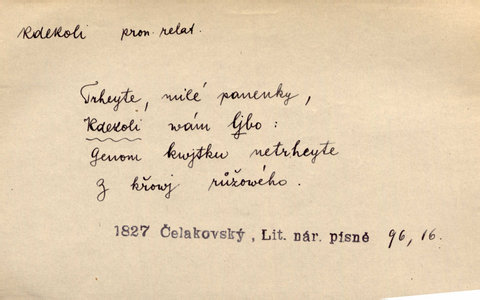 Kdekoli pron. relat.
Trheyte, milé panenky,
Kdekoli wám ljbo:
Genom kwjtku netrheyte
Z křowj růžowého.
1827 Čelakovský, Lit. nár. písně 96, 16.